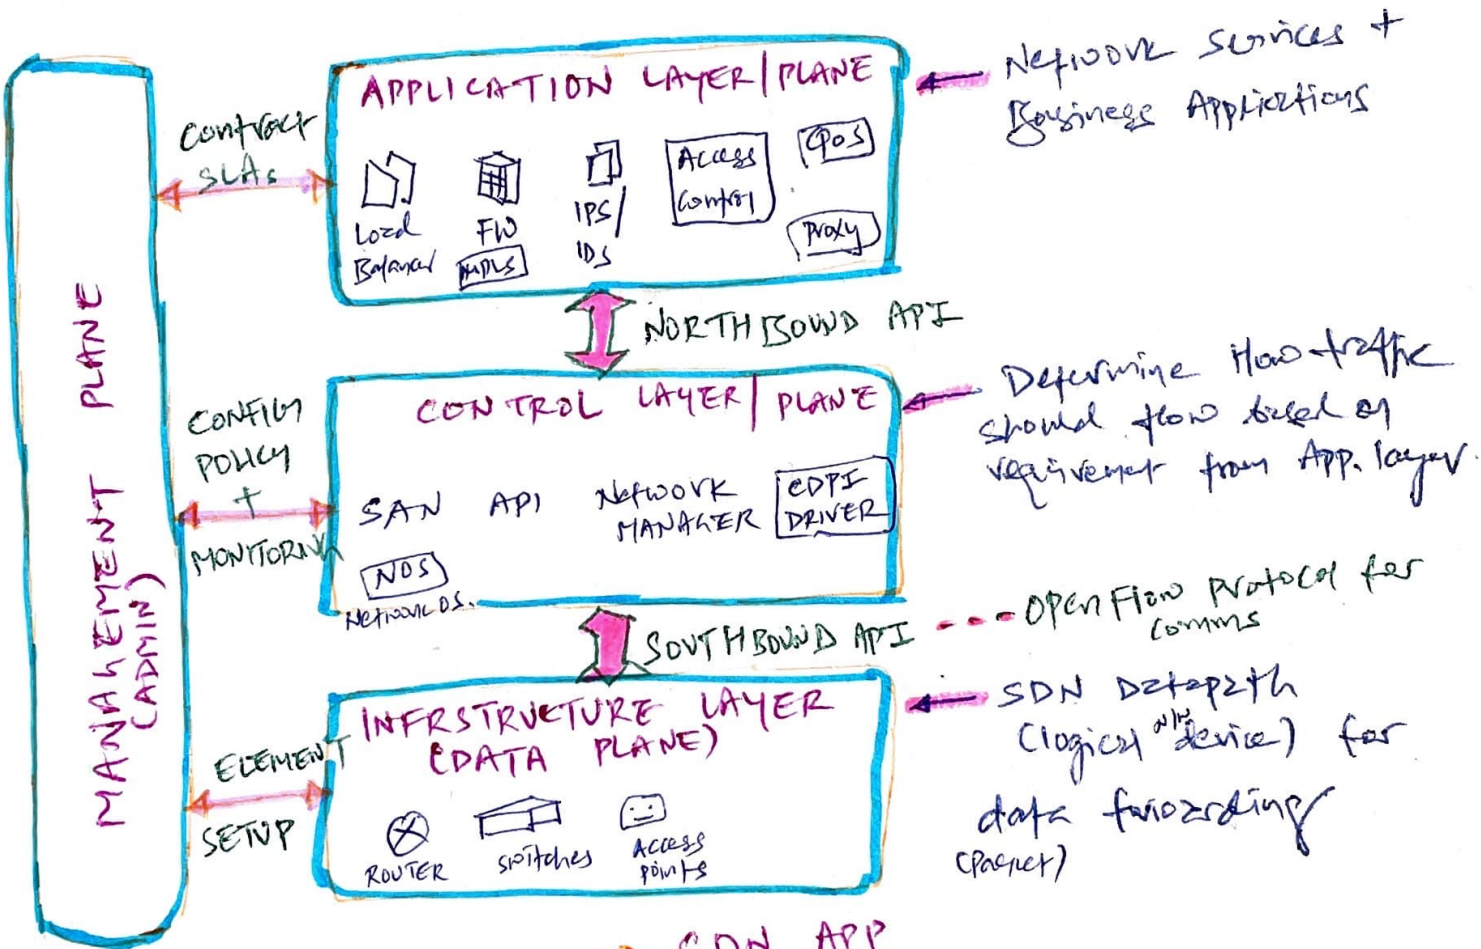 MANAGEMENT PLANE
(ADMIN)
Contract
SLAs
CONFIG
POLICY
+
MONITORING
ELEMENT
SETUP
APPLICATION LAYER/PLANE
Load
Balancer
FW
MPLS
IPS/
IDS
Access
Control
QoS
Proxy
Network Services +
Business Applications
NORTHBOUND API
CONTROL LAYER/PLANE
SAN
API
Network
MANAGER
CDPI
DRIVER
NOS
Network OS.
Determine How traffic
should flow based on
requirement from App. layer.
SOUTHBOUND API
OPEN Flow protocol for
comms
INFRSTRUCTURE LAYER
(DATA PLANE)
ROUTER
Switches
Access
points
SDN Datapath
(logical N/W device) for
data forwarding
(Packet)
SDN APP